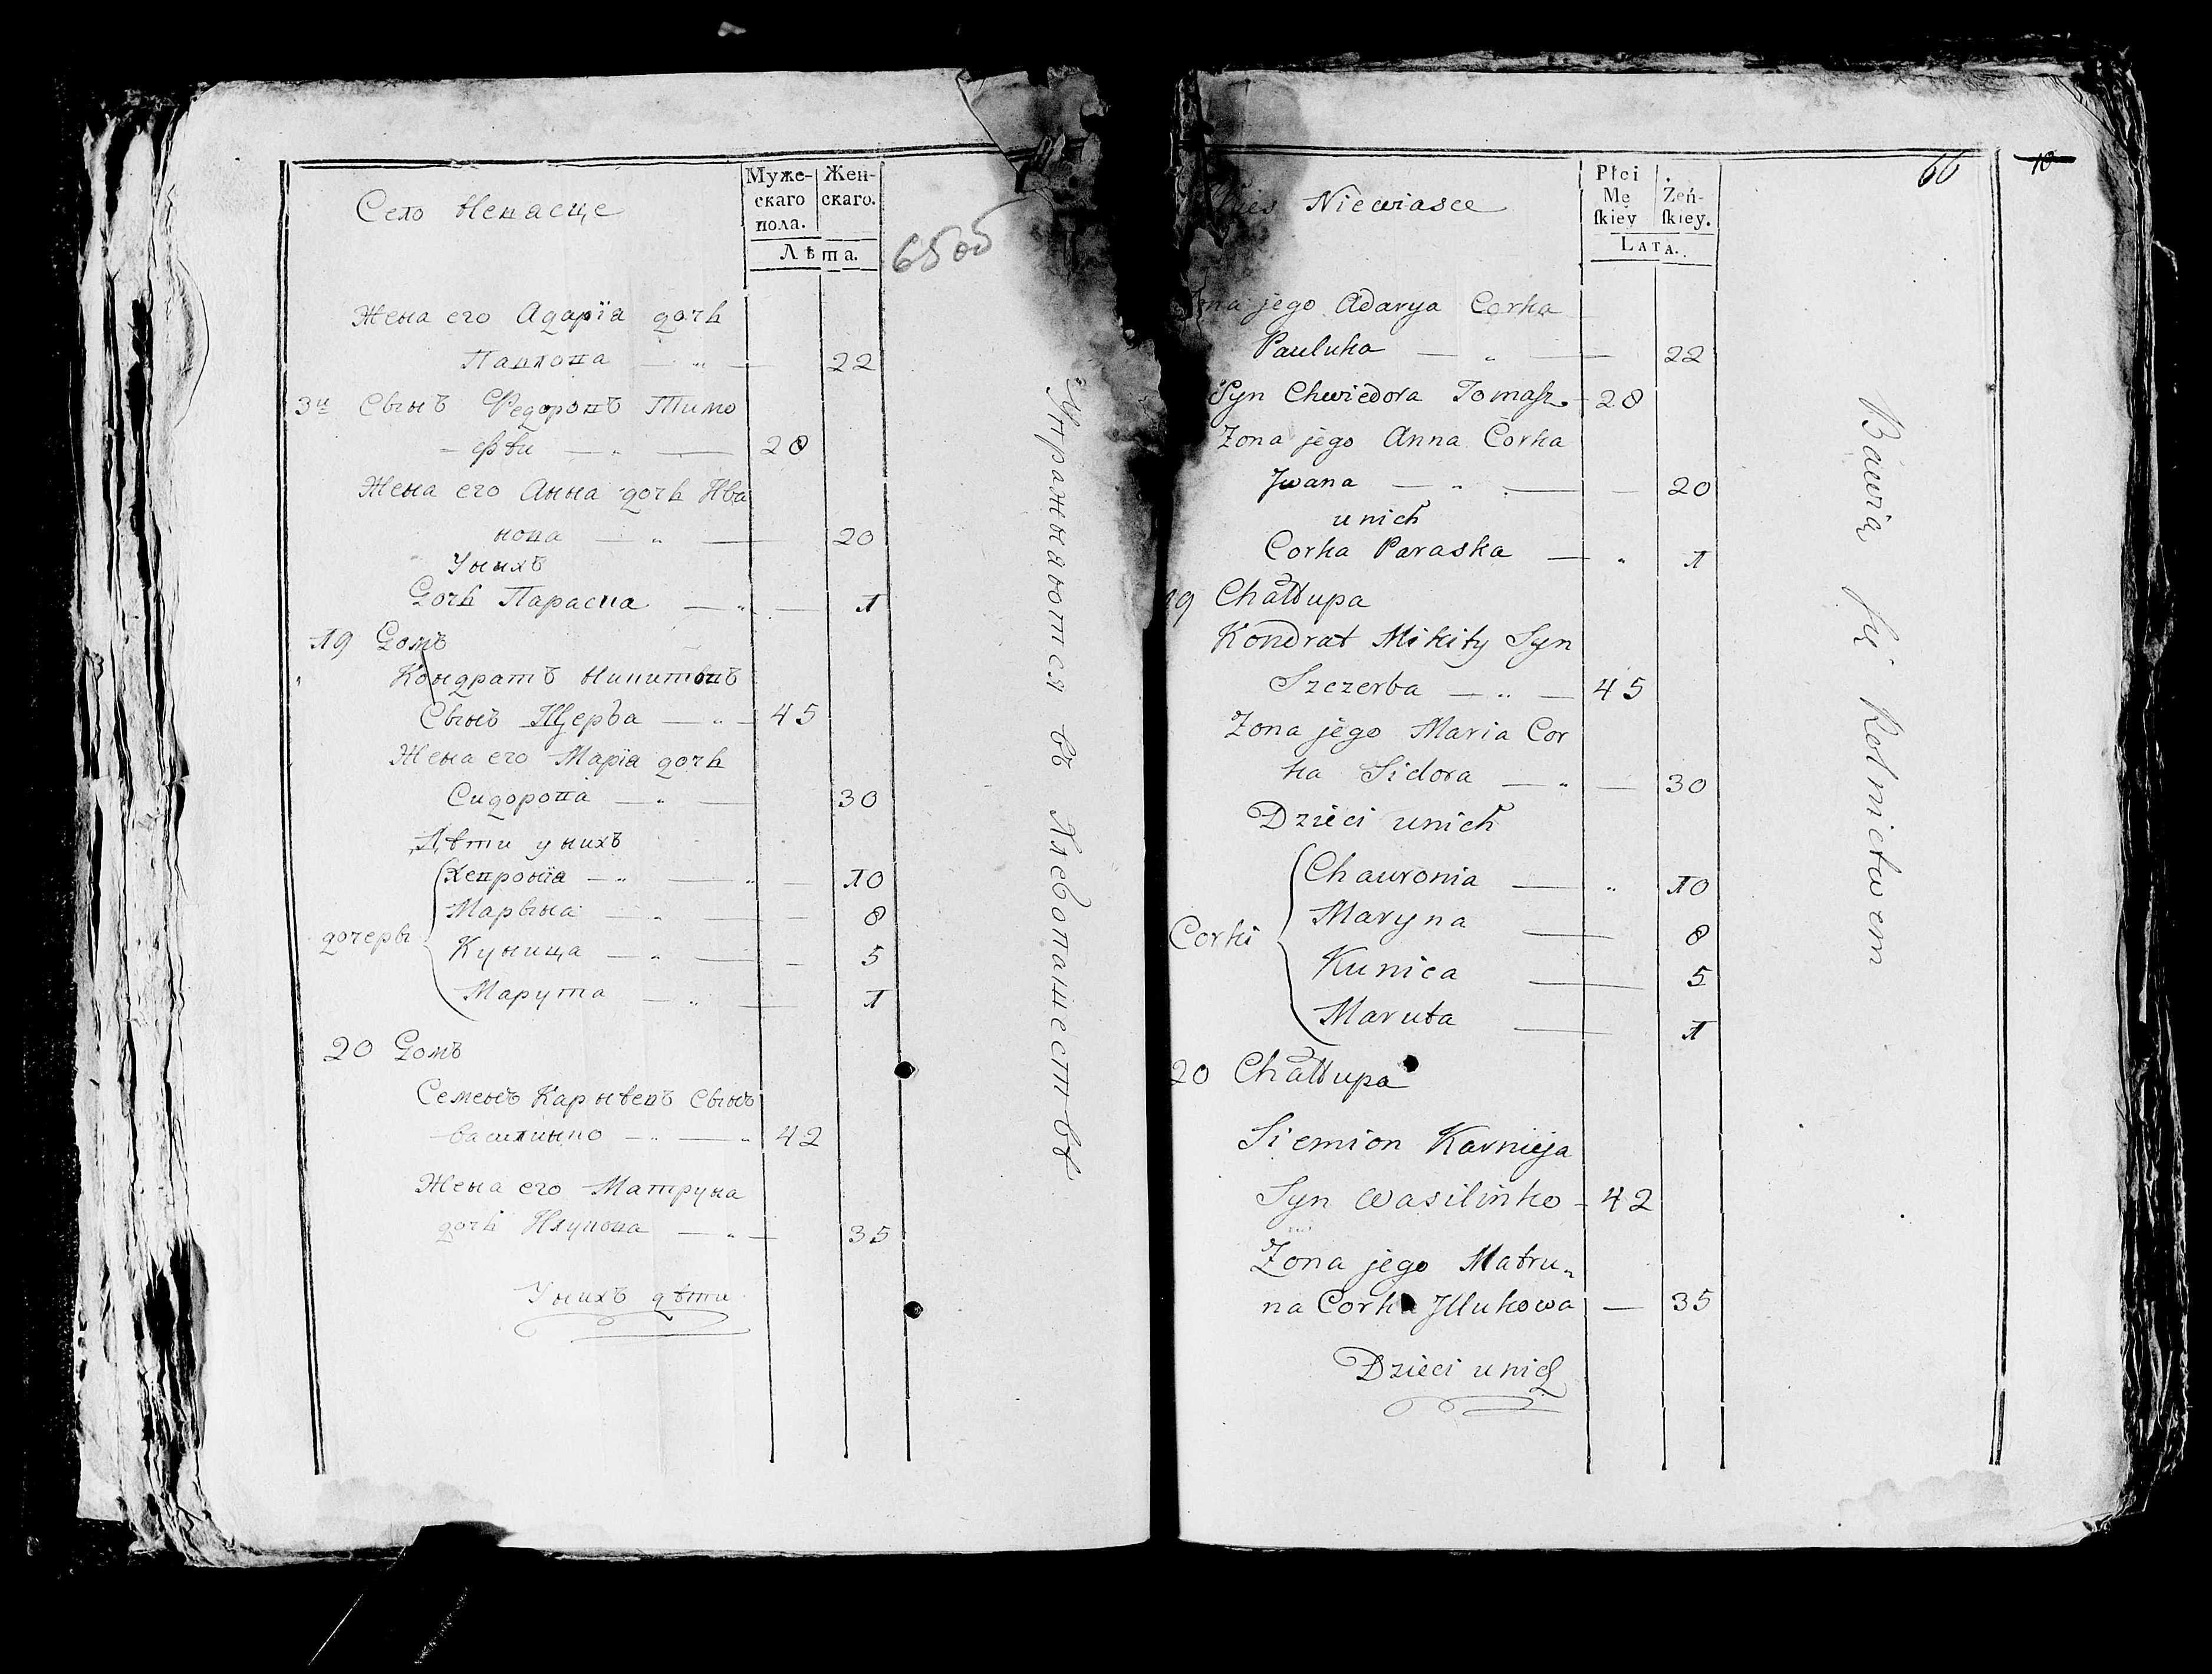 Село Невасще
Муже-
скаго
пола.
Жен-
скаго.
Лѣта.
65об
Жена его Адарїа дочь
Павлова — " — 22
3й Сынъ Федоровъ Тимо
-фѣи — " — 28
Жена его Анна дочь Ива
нова — " — 20
Унихъ
Дочь Параска — " — 1
19 Домъ
Кондратъ Никитовъ
Сынъ Щерба — " — 45
Жена его Марїа дочь
Сидорова — " — 30
Дѣти унихъ
Хевронїа — " — " — 10
Марына — " — 8
дочеры
Куница — " — 5
Марута — " — 1
20 Домъ
Семенъ Карнѣевъ Сынъ
Василинко — " — " 42
Жена его Матруна
дочь Илукова — " — 35
Унихъ дѣти
Упражняются въ Хлебопашествѣ
Niewiasce
Płci
Mę
ſkiey
Żeń-
ſkiey.
LATA.
66
10
jego Adarya Corka
Pauluka — " — 22
Syn Chwiedora Tomaſz - 28
Zona jego Anna Corka
Jwana — " — 20
unich
Corka Paraska — " 1
19 Chałłupa
Kondrat Mikity Syn
Szczerba — " — 45
Zona jego Maria Cor
ka Sidora — " — 30
Dzieci unich
Chawronia — " 10
Maryna — 8
Corki
Kunica — 5
Maruta — 1
20 Chałłupa
Siemion Karnieja
Syn Wasilinko - 42
Zona jego Matru„
na Corka Jllukowa — 35
Dzieci unich
Bawią ſię Rolnictwem